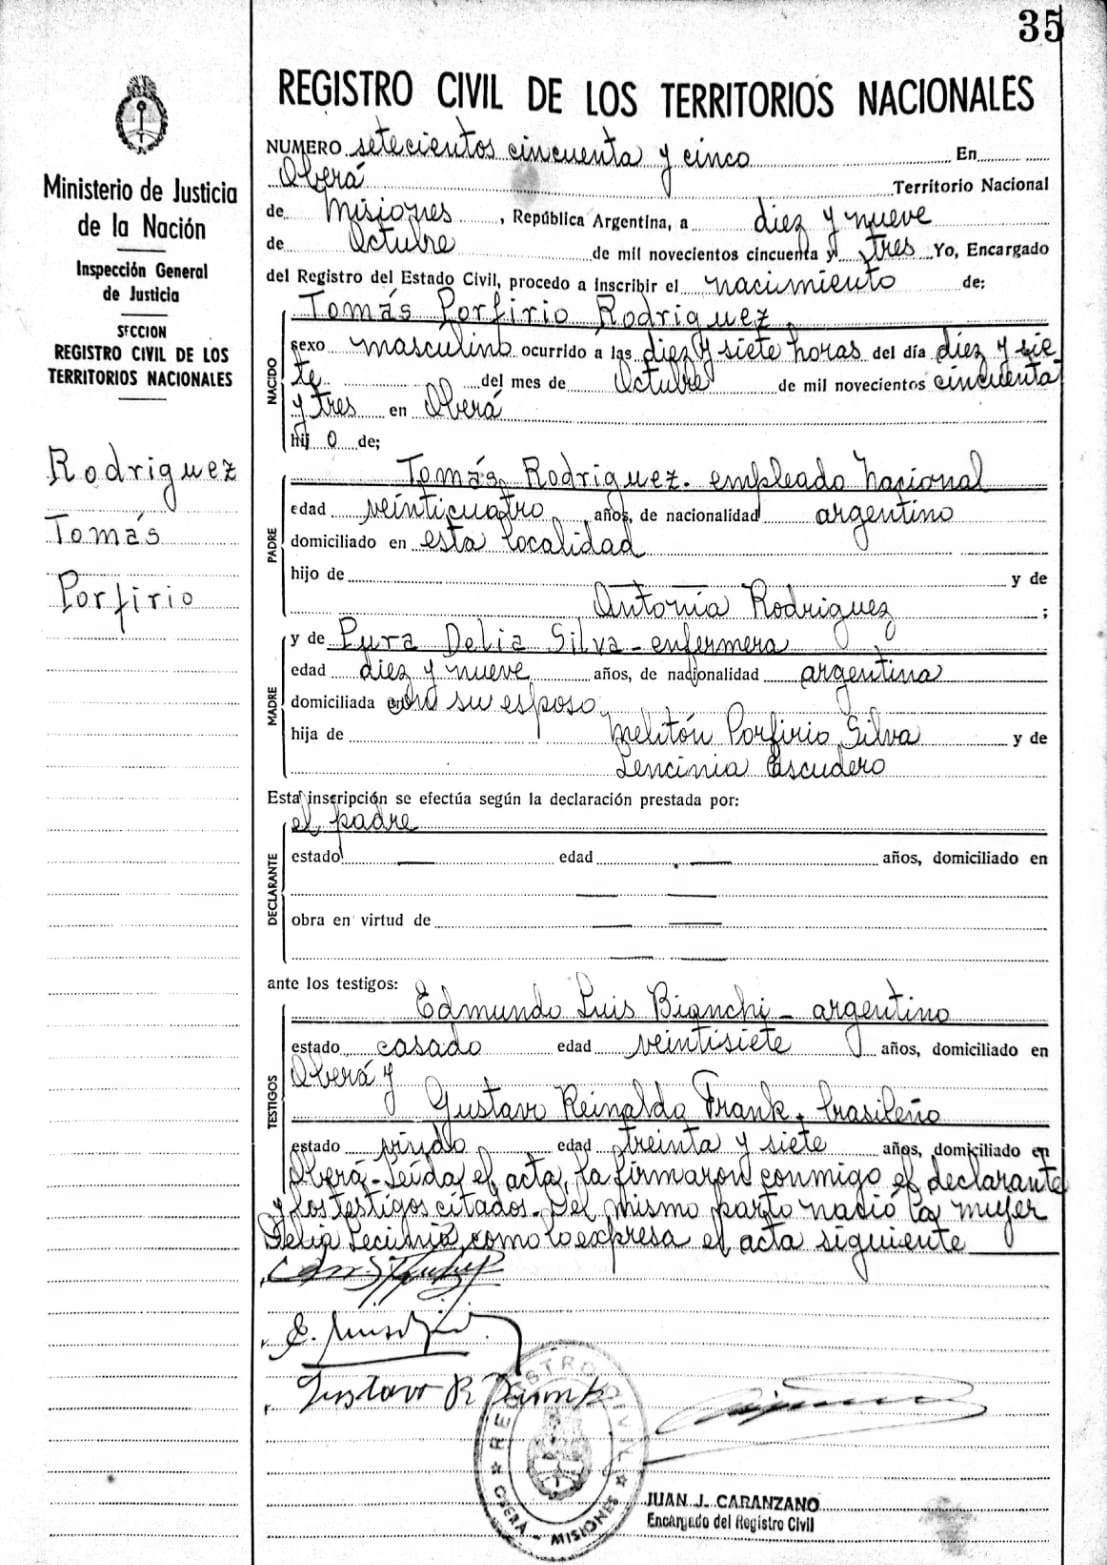 35
REGISTRO CIVIL DE LOS TERRITORIOS NACIONALES
Ministerio de Justicia
de la Nación
Inspección General
de Justicia
SECCION
REGISTRO CIVIL DE LOS
TERRITORIOS NACIONALES
Rodriguez
Tomás
Porfirio
NUMERO setecientos cincuenta y cinco En
Oberá Territorio Nacional
de Misiones, República Argentina, a diez y nueve
de Octubre de mil novecientos cincuenta y tres Yo, Encargado
del Registro del Estado Civil, procedo a inscribir el nacimiento de:
Tomás Porfirio Rodriguez
NACIDO
sexo masculino ocurrido a las diez y siete horas del día diez y sie
te del mes de Octubre de mil novecientos cincuenta
y tres en Oberá
hij o de;
PADRE
Tomás Rodriguez. empleado Nacional
edad veinticuatro años, de nacionalidad argentino
domiciliado en esta localidad
hijo de y de
Antonia Rodriguez ;
MADRE
y de Pura Delia Silva - enfermera
edad diez y nueve años, de nacionalidad argentina
domiciliada con su esposo
hija de Melitón Porfirio Silva y de
Lencinia Escudero
Esta inscripción se efectúa según la declaración prestada por:
DECLARANTE
el padre
estado — edad — años, domiciliado en
— —
obra en virtud de — —
— —
ante los testigos:
TESTIGOS
Edmundo Luis Bianchi - argentino
estado casado edad veintisiete años, domiciliado en
Oberá y
Gustavo Reinaldo Frank, brasileño
estado viudo edad treinta y siete años, domiciliado en
Oberá - Leída el acta, la firmaron conmigo el declarante
y los testigos citados. Del mismo parto nació la mujer
Delia Lecinia, como lo expresa el acta siguiente
Gustavo R Frank
REGISTRO CIVIL
OBERA - MISIONES
JUAN J. CARANZANO
Encargado del Registro Civil